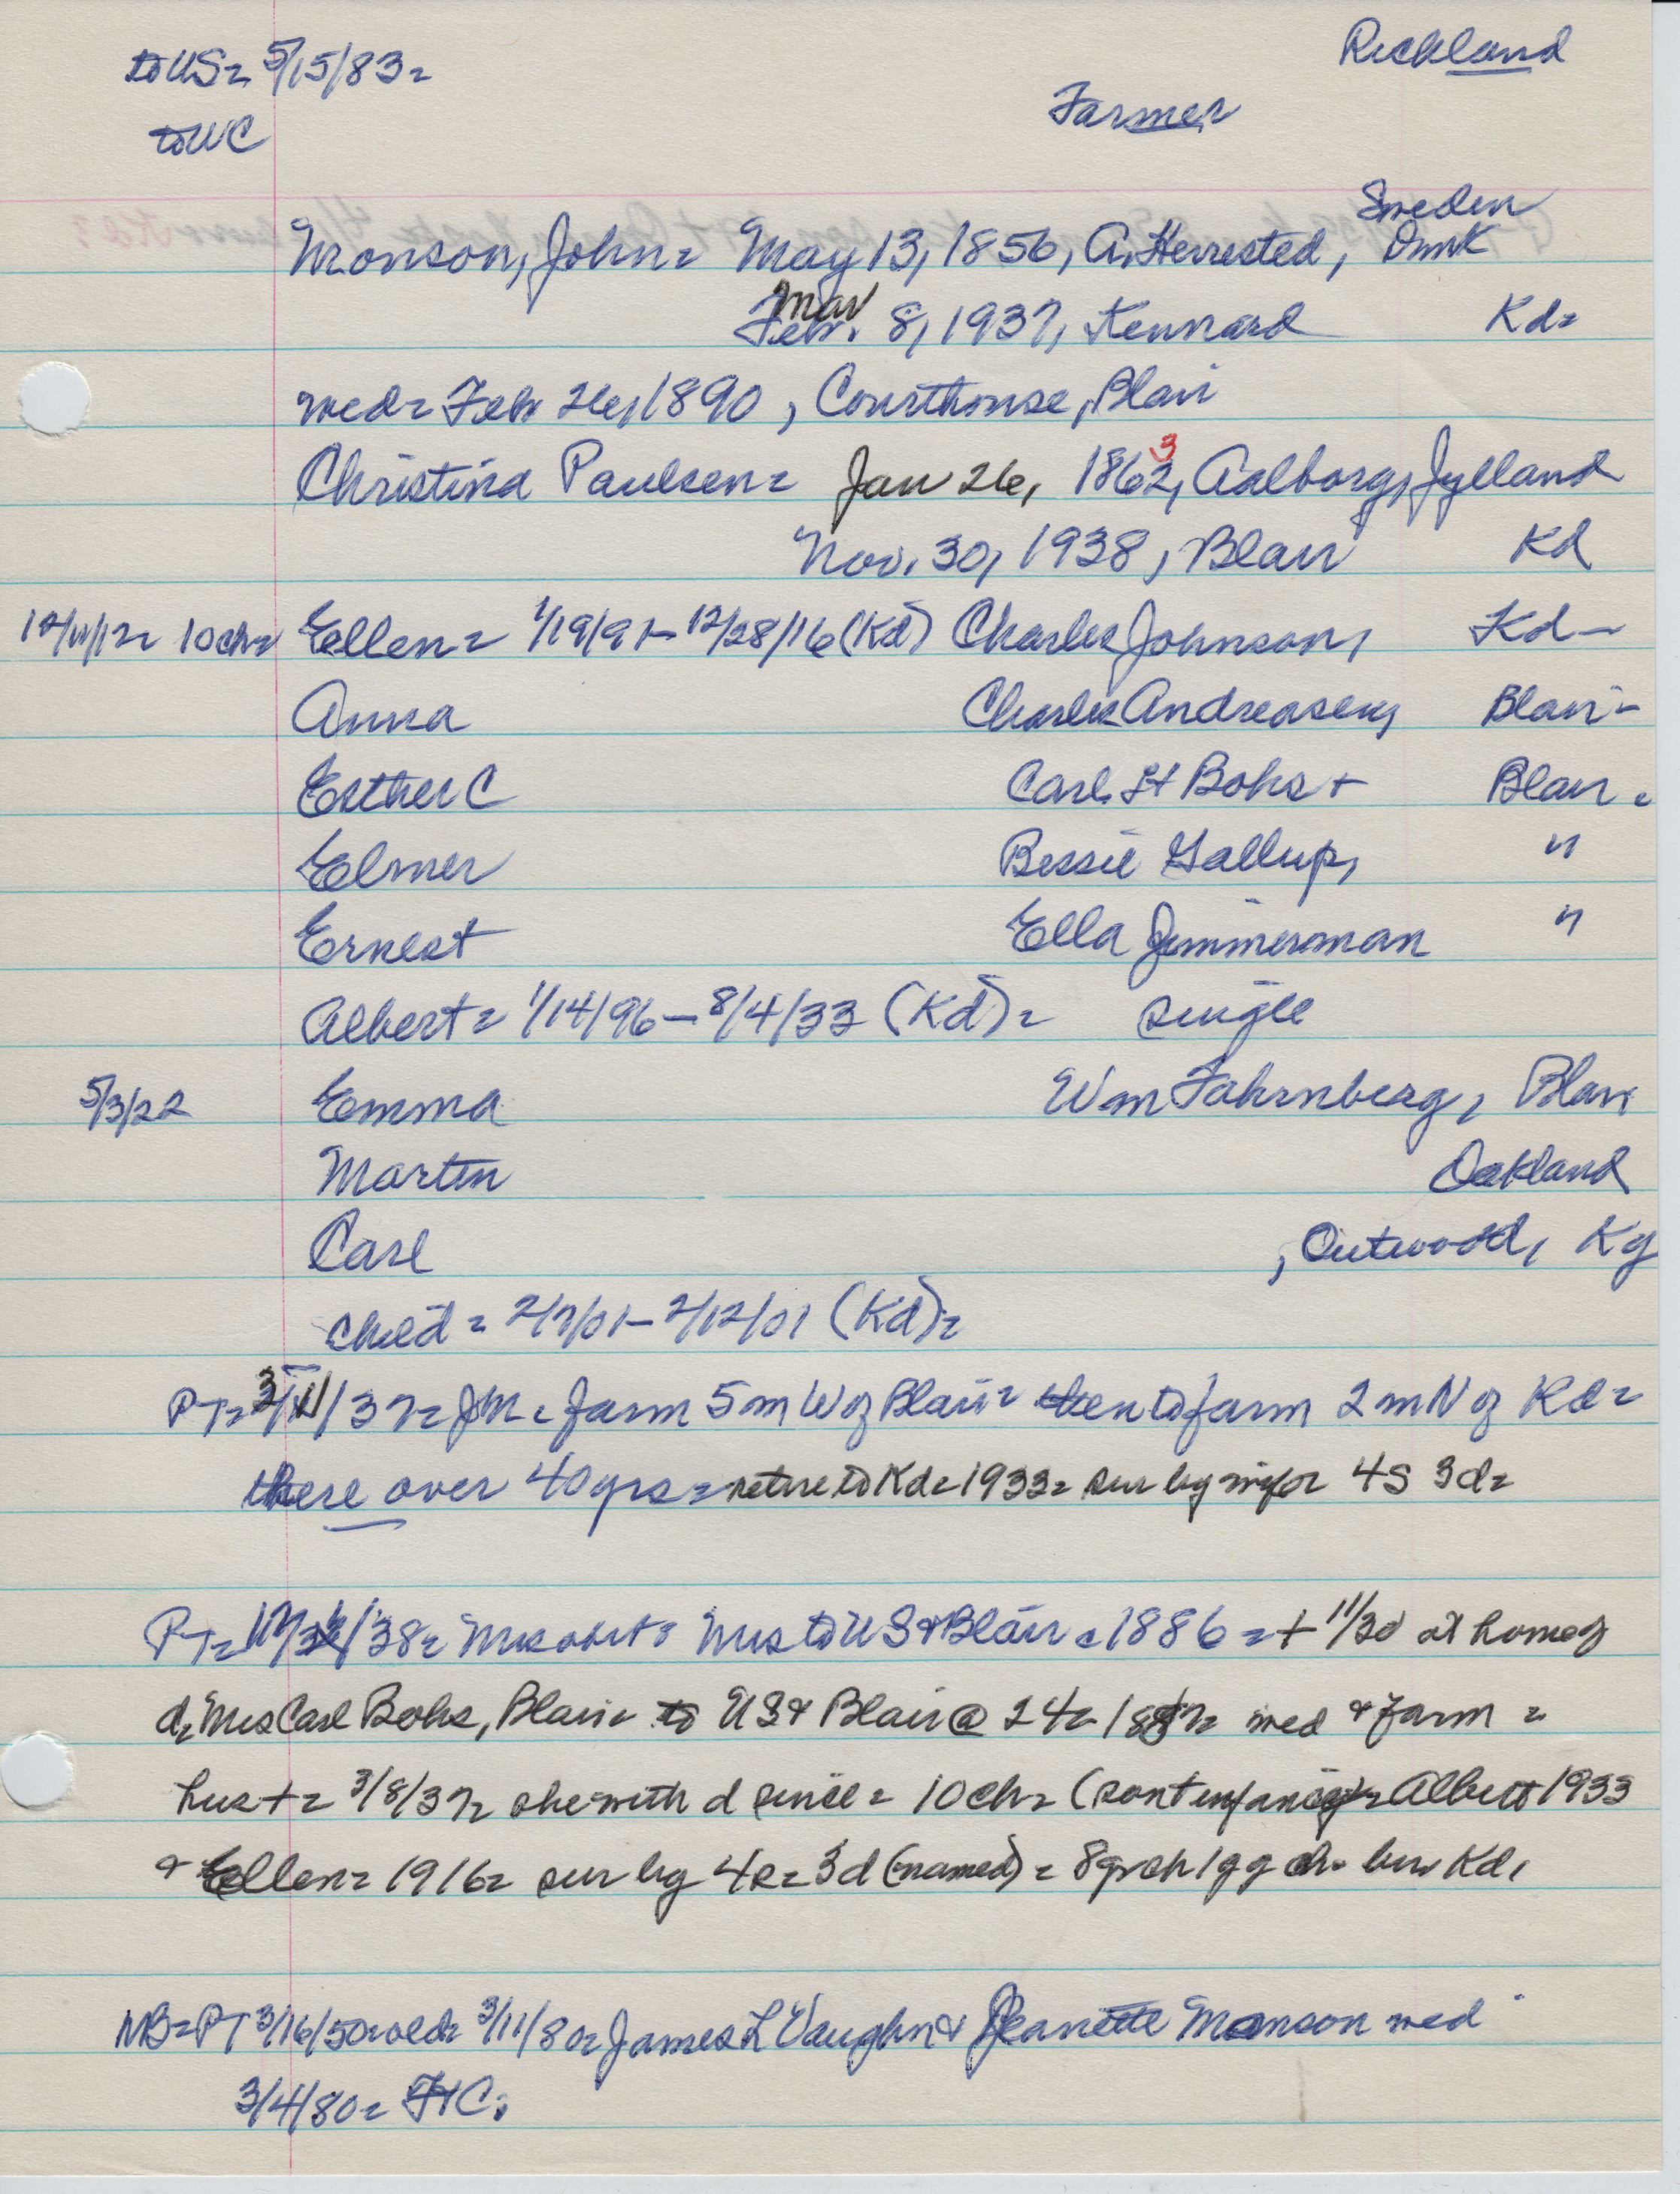 to US= 5/15/83=
Richland
to WC
Farmer
Sweden
Monson, John= May 13, 1856, A. Herrested, Dmk
Mar
Febr. 8, 1937, Kennard Kd=
wed= Feb 26, 1890, Courthouse, Blair
Christina Paulsen= Jan 26, 1862, Aalborg, Jylland
3
Nov. 30, 1938, Blair Kd
10 ch= Ellen= 1/19/91- 12/28/16 (Kd) Charles Johnson, Kd-
Anna Charles Andreasen, Blair-
Esther C Carl St Bohs + Blair=
Elmer Bessie Gallup, "
Ernest Ella Jimmerman "
Albert= 1/14/96- 8/4/33 (Kd)= single
5/3/22 Emma Wm Fahrnberg, Blair
Martin Oakland
Carl , Outwood, Ky
child= 2/7/01- 2/12/01 (Kd)=
PT= 3/11/37= JM= farm 5 m W of Blair= then to farm 2 m N of Kd=
there over 40 yrs= retire to Kd= 1933= sur by 4s 3d=
PT= /38= Mrs to US & Blair = 1886= + 11/30 at home of
d, Mrs Carl Bohs, Blair= to US & Blair @ 24= 1887= wed & farm=
hus += 3/8/37= she with d since= 10 ch= (son + infancy)= Albert 1933
& Ellen= 1916= sur by 4s= 3d (named)= 8 grch 1 gg ch= bur Kd,
NB= PT 3/16/50= 3/11/80= James L Vaughn & Jeanette Monson wed
3/4/80= FtC.